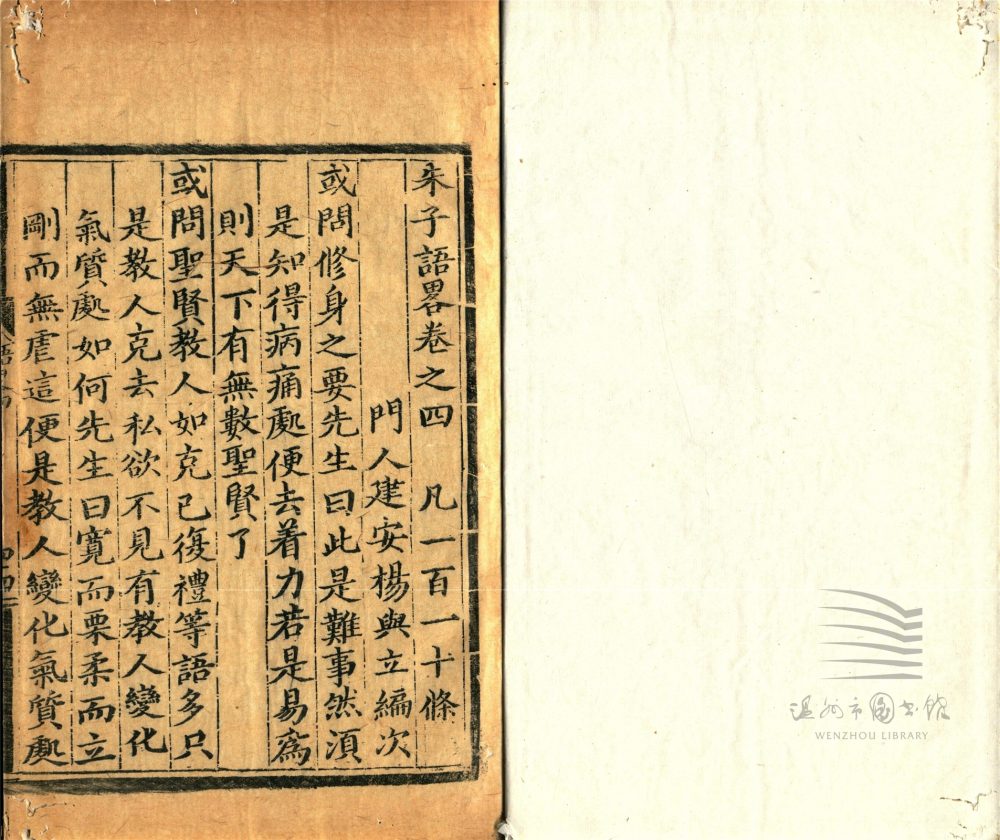 朱子語畧卷之四　凡一百一十條
門人建安楊與立編次
或問修身之要先生曰此是難事然須
是知得病痛處便去着力若是易爲
則天下有無數聖賢了
或問聖賢教人如克已復禮等語多只
是教人克去私欲不見有教人變化
氣質處如何先生曰寛而栗柔而立
剛而無虐這便是教人變化氣質處
温州市图书馆
WENZHOU LIBRARY